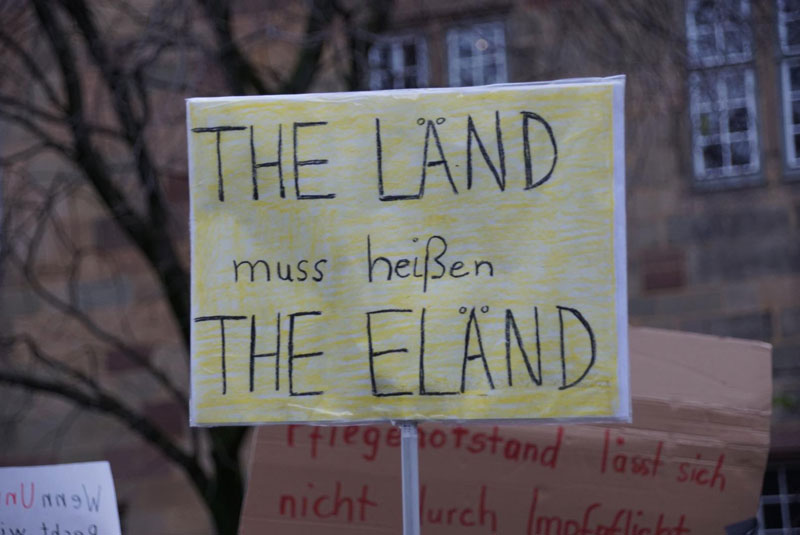 THE LÄND
muss heißen
THE ELÄND
Pflegenotstand lässt sich
nicht durch Impfpflicht
Wenn